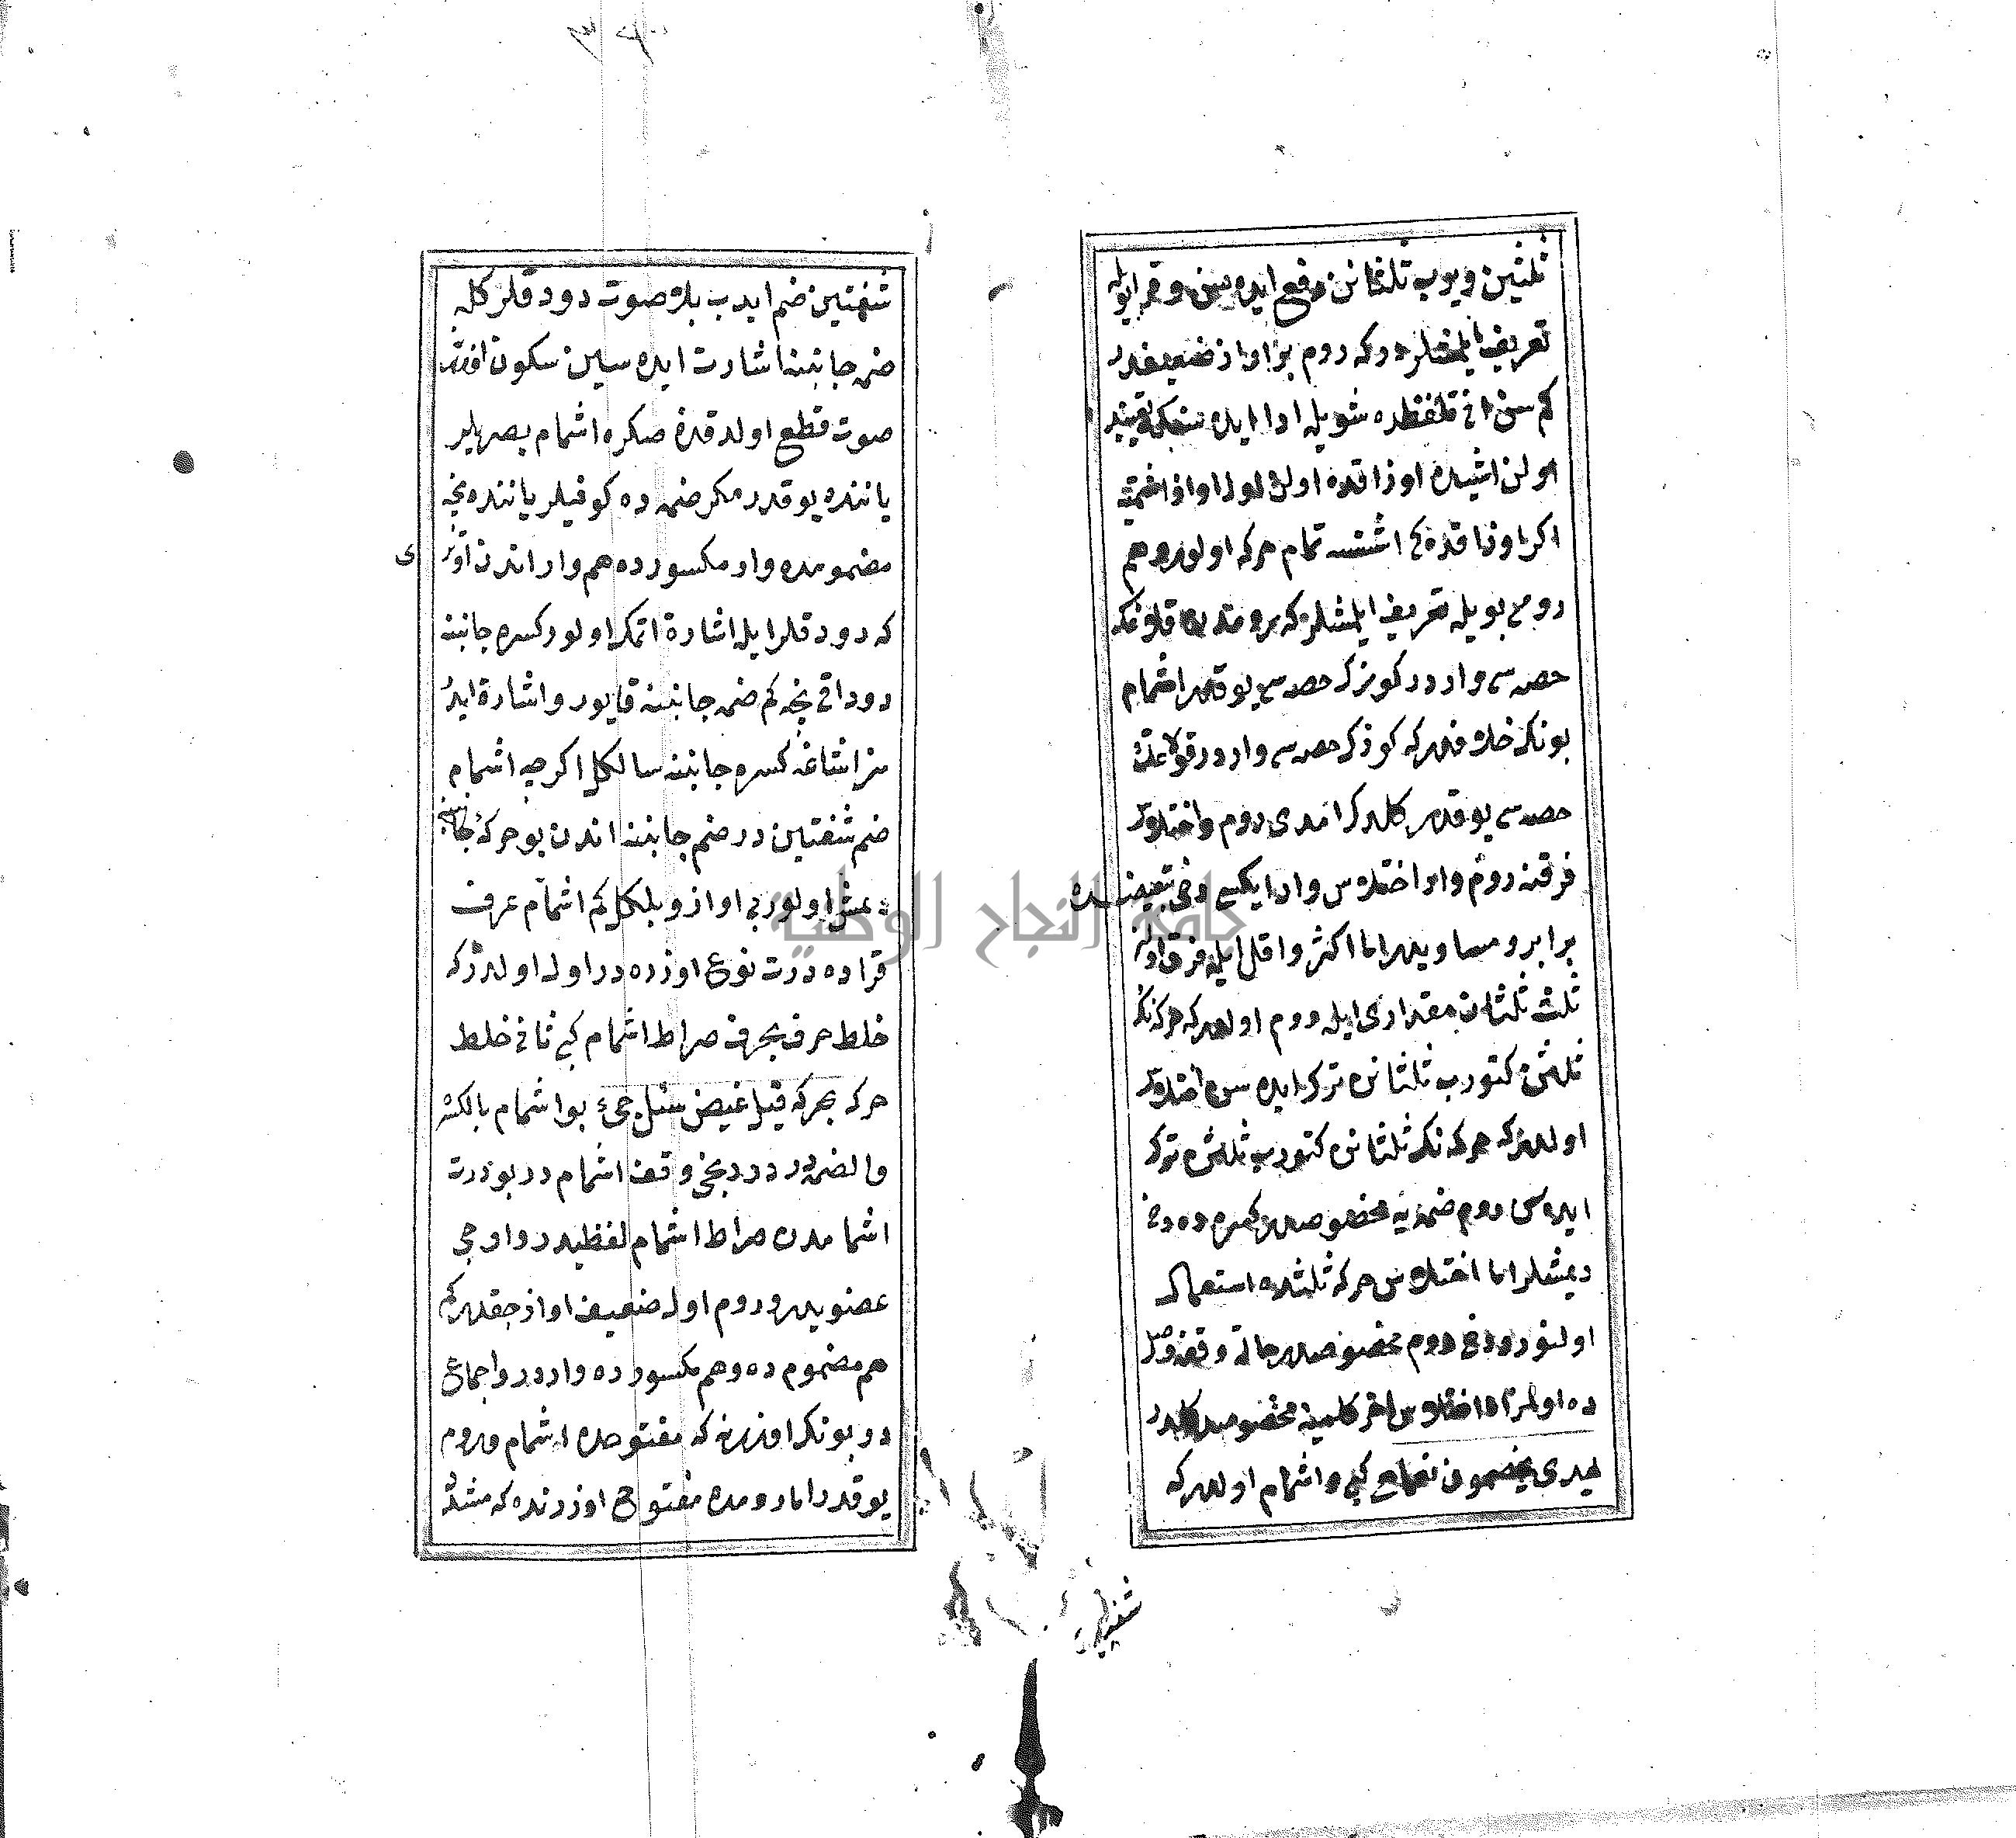 ثلثين ويوب ثلثانن رفع ايده سن وقرا بويله
تعريف ايلمشلردر كه روم بر اواز ضعيفدر
كم سن انى تلفظده شويله ادا ايده سنكه يقينده
اولن اشيده اوزاقده اولن اول اوازى اشتميه
اكر اوزاقده كى اشتسه تمام حركه اولور وهم
رومى بويله تعريف ايلمشلر كه برو قولاغك
حصه سى واردر كوزك حصه سى يوقدر اشمام
بونك خلافيدر كه كوزك حصه سى واردر قولاغك
حصه سى يوقدر كلدك امدى روم واختلاس
فرقنه روم وار اختلاس وار ايكيسى دخى تبعيضده
برابر ومساويدر اما اكثر واقل ايله فرق اولنه
ثلث ثلثان مقدارى ايله روم اولدر كه حركه نك
ثلثن كتورب ثلثانن ترك ايده سن اختلاس
اولدر كه حركه نك ثلثانن كتورب ثلثن ترك
ايده سن روم ضمه يه مخصوصدر كسره ده دخى
ديمشلر اما اختلاس حركه ثلثده استعمال
اولنور ودخى روم مخصوصدر حالة وقفه وصل
ده اولمز اما اختلاس اخر كلمه يه مخصوص دكلدر
يهدى يخصمون نعما كبى واشمام اولدر كه
شفتين
شفتين ضم ايدب بلا صوت دودقلر كله
ضمه جانبنه اشارت ايده سين سكون
صوت قطع اولدقدن صكره اشمام بصريلر
ياننده يوقدر مكر ضمه ده كوفيلر ياننده نجه
مضمومده وار مكسورده هم وار اندن اوتر
ى
كه دودقلر ايله اشارة اتمك اولور كسره جانبنه
دوداقى نجه كم ضمه جانبنه قايور واشارة ايدر
سز اشاغه كسره جانبنه سالكل اكرچه اشمام
ضم شفتين در ضم جانبنه اندن بو حركه
ديمش اولور بى اواز وبلكل كم اشمام عرف
قراده درت نوع اوزره در اول اولدر كه
خلط حرف بحرف صراط اشمام كبى ثانى خلط
حركه بحركه قيل غيض سئل جئ بو اشمام بالكسر
والضمه در دردنجى وقف اشمام در بو درت
اشمامدن صراط اشمام لفظيدر واوچى
عضويدر وروم اول ضعيف اوازجقدر كم
هم مضموم ده وهم مكسور ده واردر واجماع
در بونك اوزرنه كه مفتوحده اشمام وروم
يوقدر اما رومده مفتوح اوزرنده كه مشدد